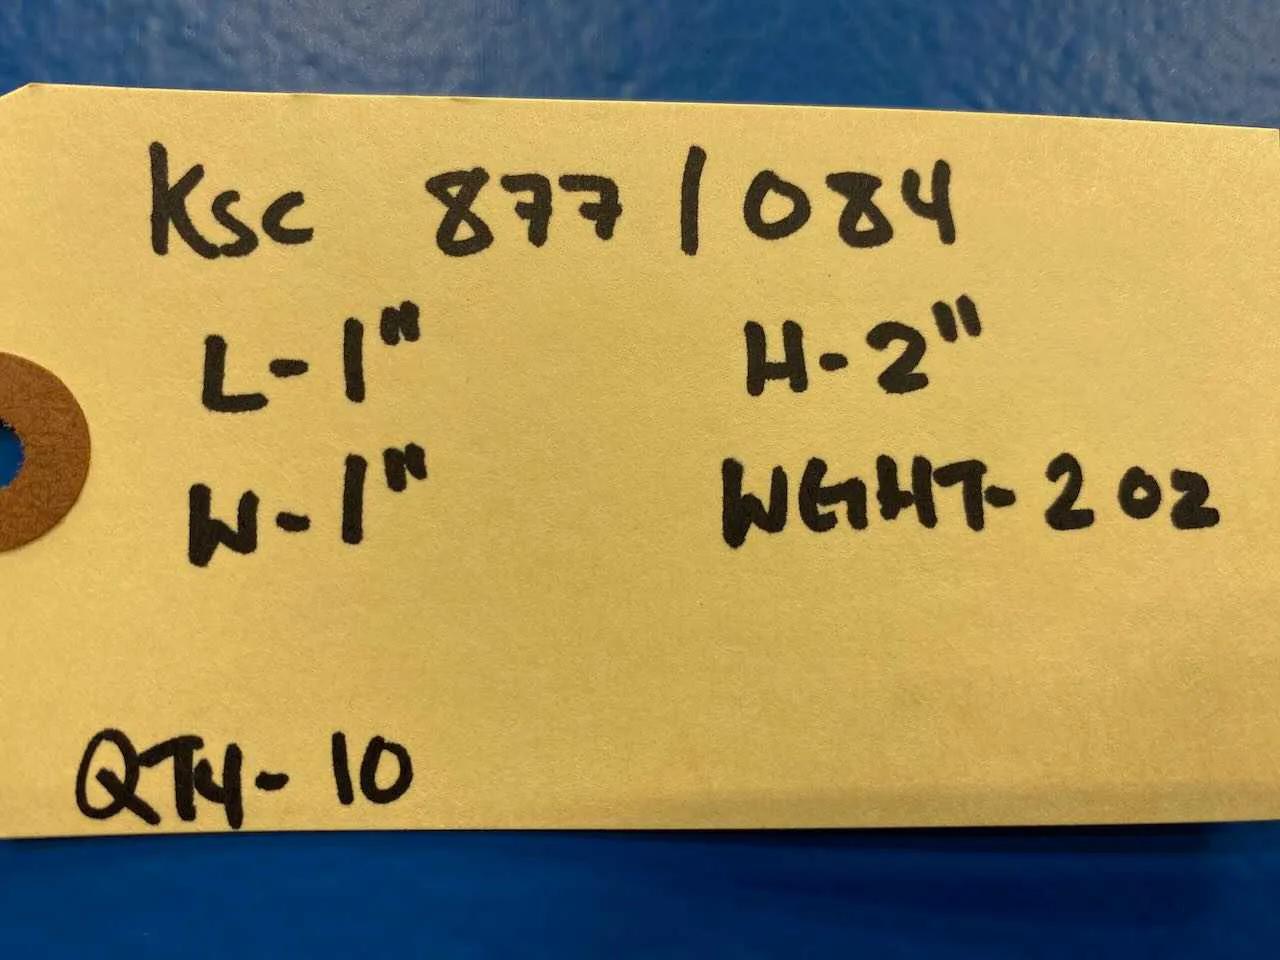 KSC 877/084
L-1" H-2"
W-1" WGHT-2 OZ
QTY-10